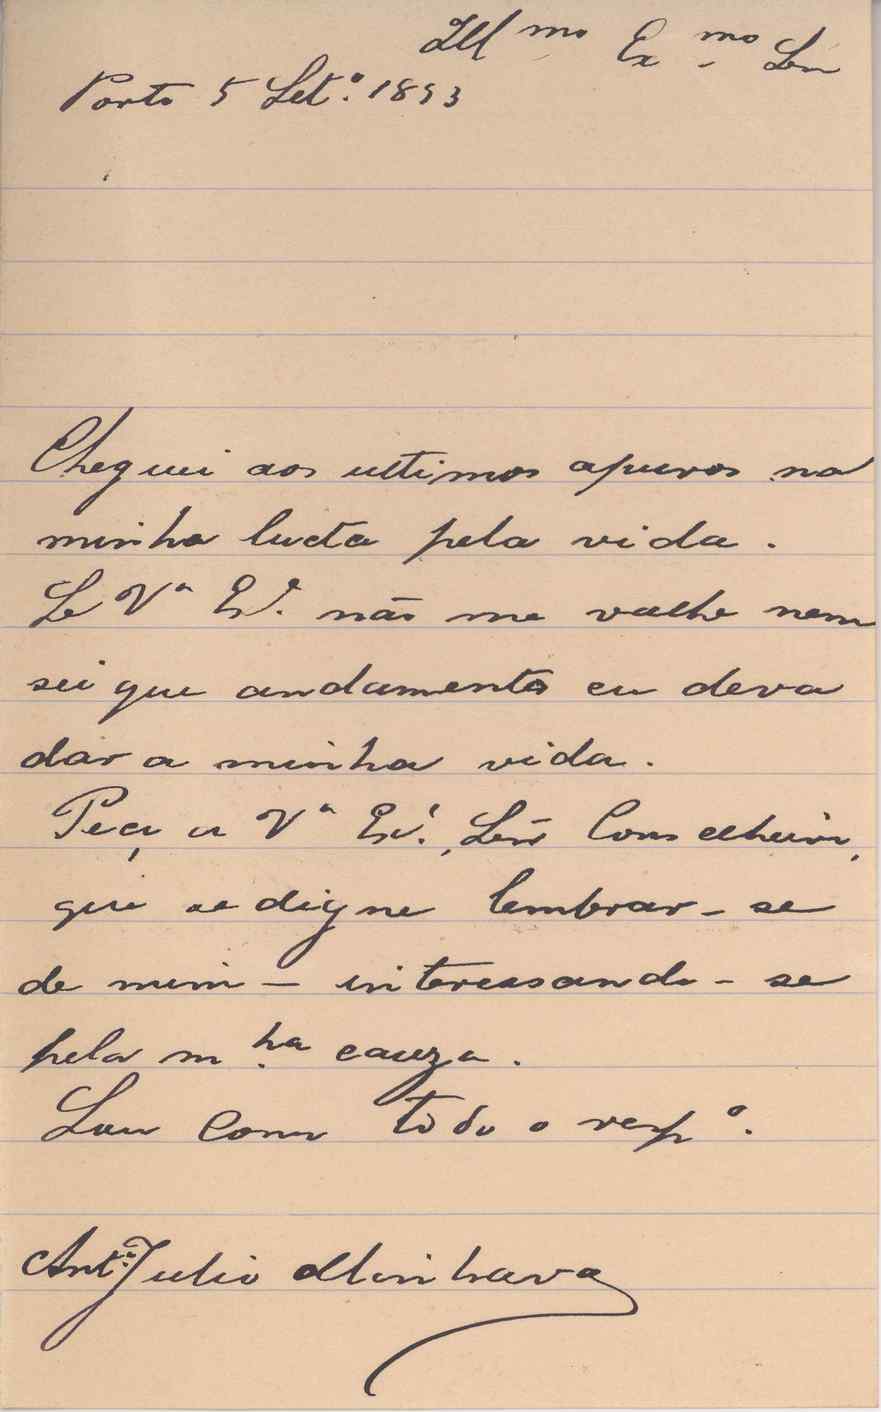 Ill.mo Ex.mo Sñr
Porto 5 Set.º 1893
Cheguei aos ultimos apuros na
minha lucta pela vida.
Se V.ª Ex.ª não me valhe nem
sei que andamento eu deva
dar a minha vida.
Peço a V.ª Ex.ª, Sñr Conselheiro,
que se digne lembrar-se
de mim – interessando-se
pela m.ha cauza.
Sou com todo o resp.º.
Ant.º Julio Minhava